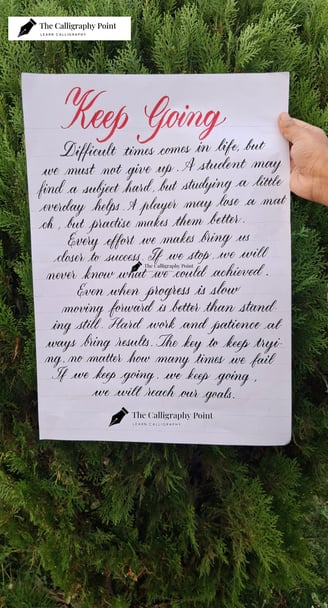 The Calligraphy Point
LEARN CALLIGRAPHY
Keep Going
Difficult times comes in life, but
we must not give up. A student may
find a subject hard, but studying a little
everday helps. A player may lose a mat
ch, but practise makes them better.
Every effort we makes bring us
closer to success. If we stop, we will
The Calligraphy Point
never know what we could achieved.
Even when progress is slow
moving forward is better than stand
ing still. Hard work and patience at
ways bring results. The key to keep tryi-
ng, no matter how many times we fail
If we keep going, we keep going,
we will reach our goals.
The Calligraphy Point
LEARN CALLIGRAPHY